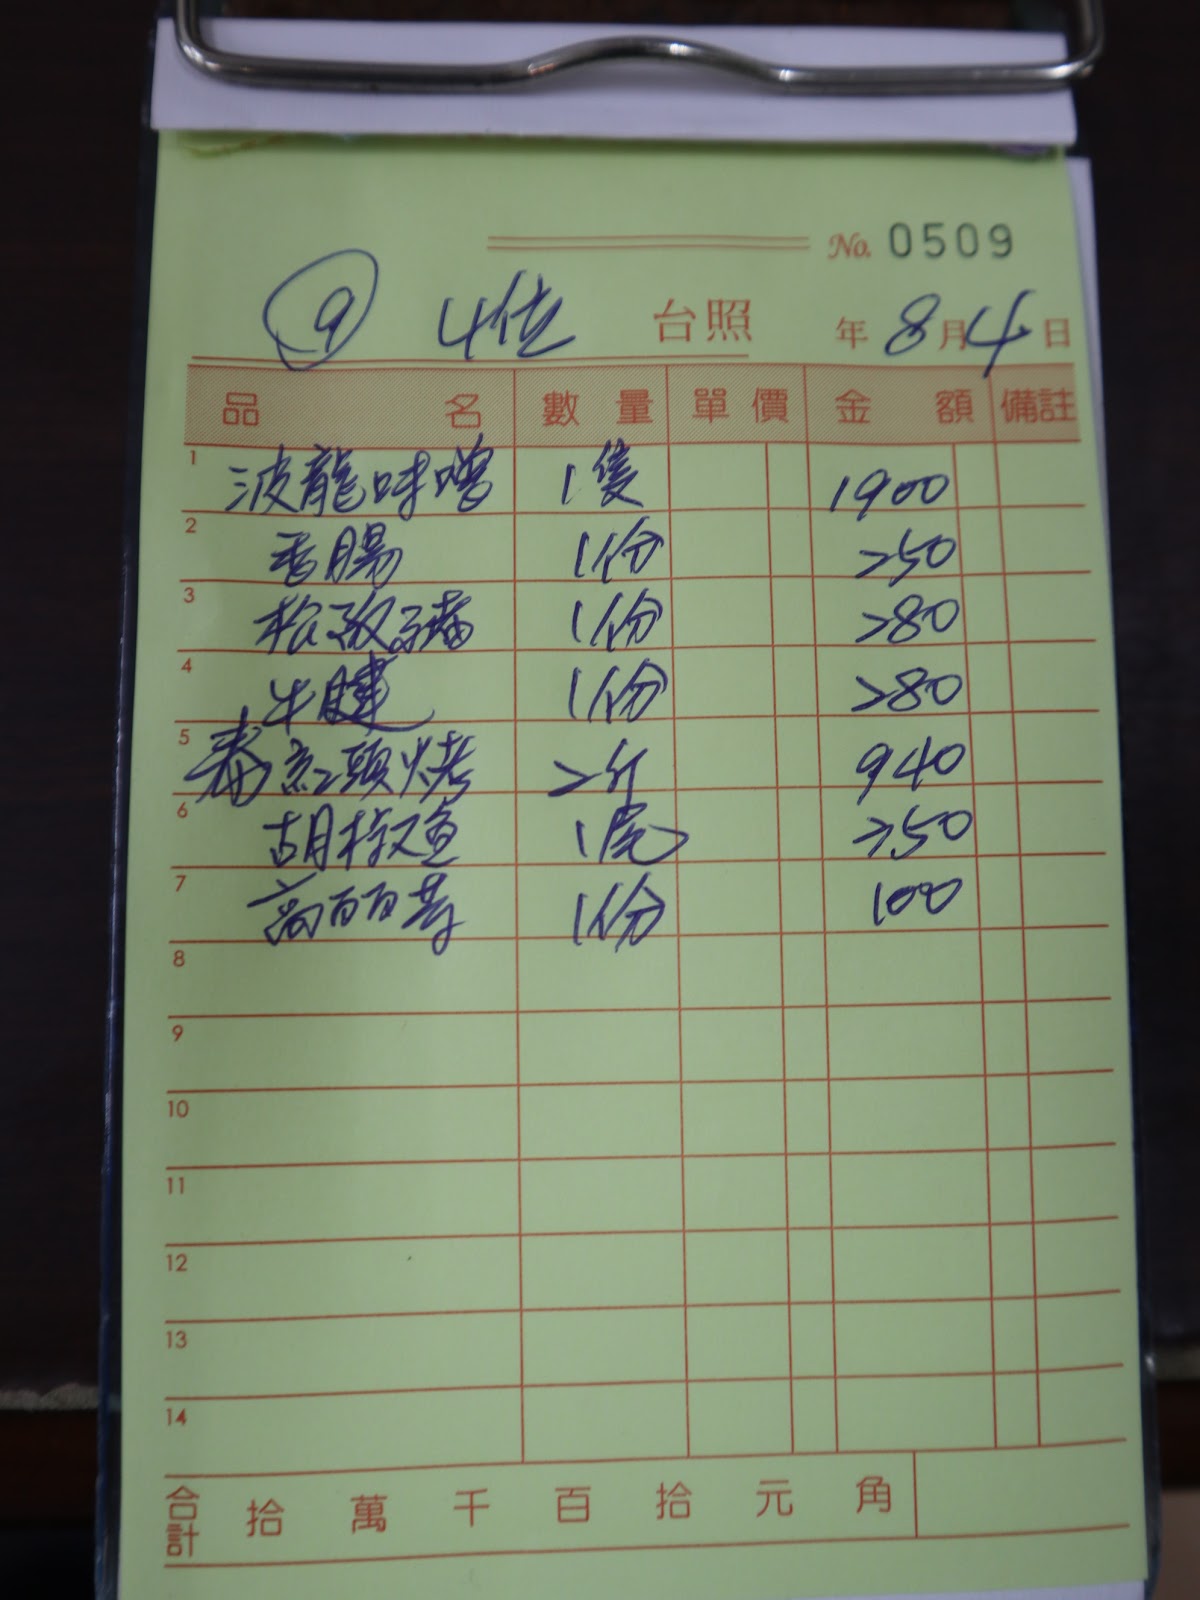 No. 0509
⑨ 4位 台照 年 8月4日
品名 數量 單價 金額 備註
1 波龍味噌 1隻 1900
2 香腸 1份 250
3 松阪豬 1份 280
4 牛腱 1份 280
5 紅頭烤 2斤 940
6 胡椒魚 1尾 250
7 高麗菜 1份 100
8
9
10
11
12
13
14
合計 拾 萬 千 百 拾 元 角